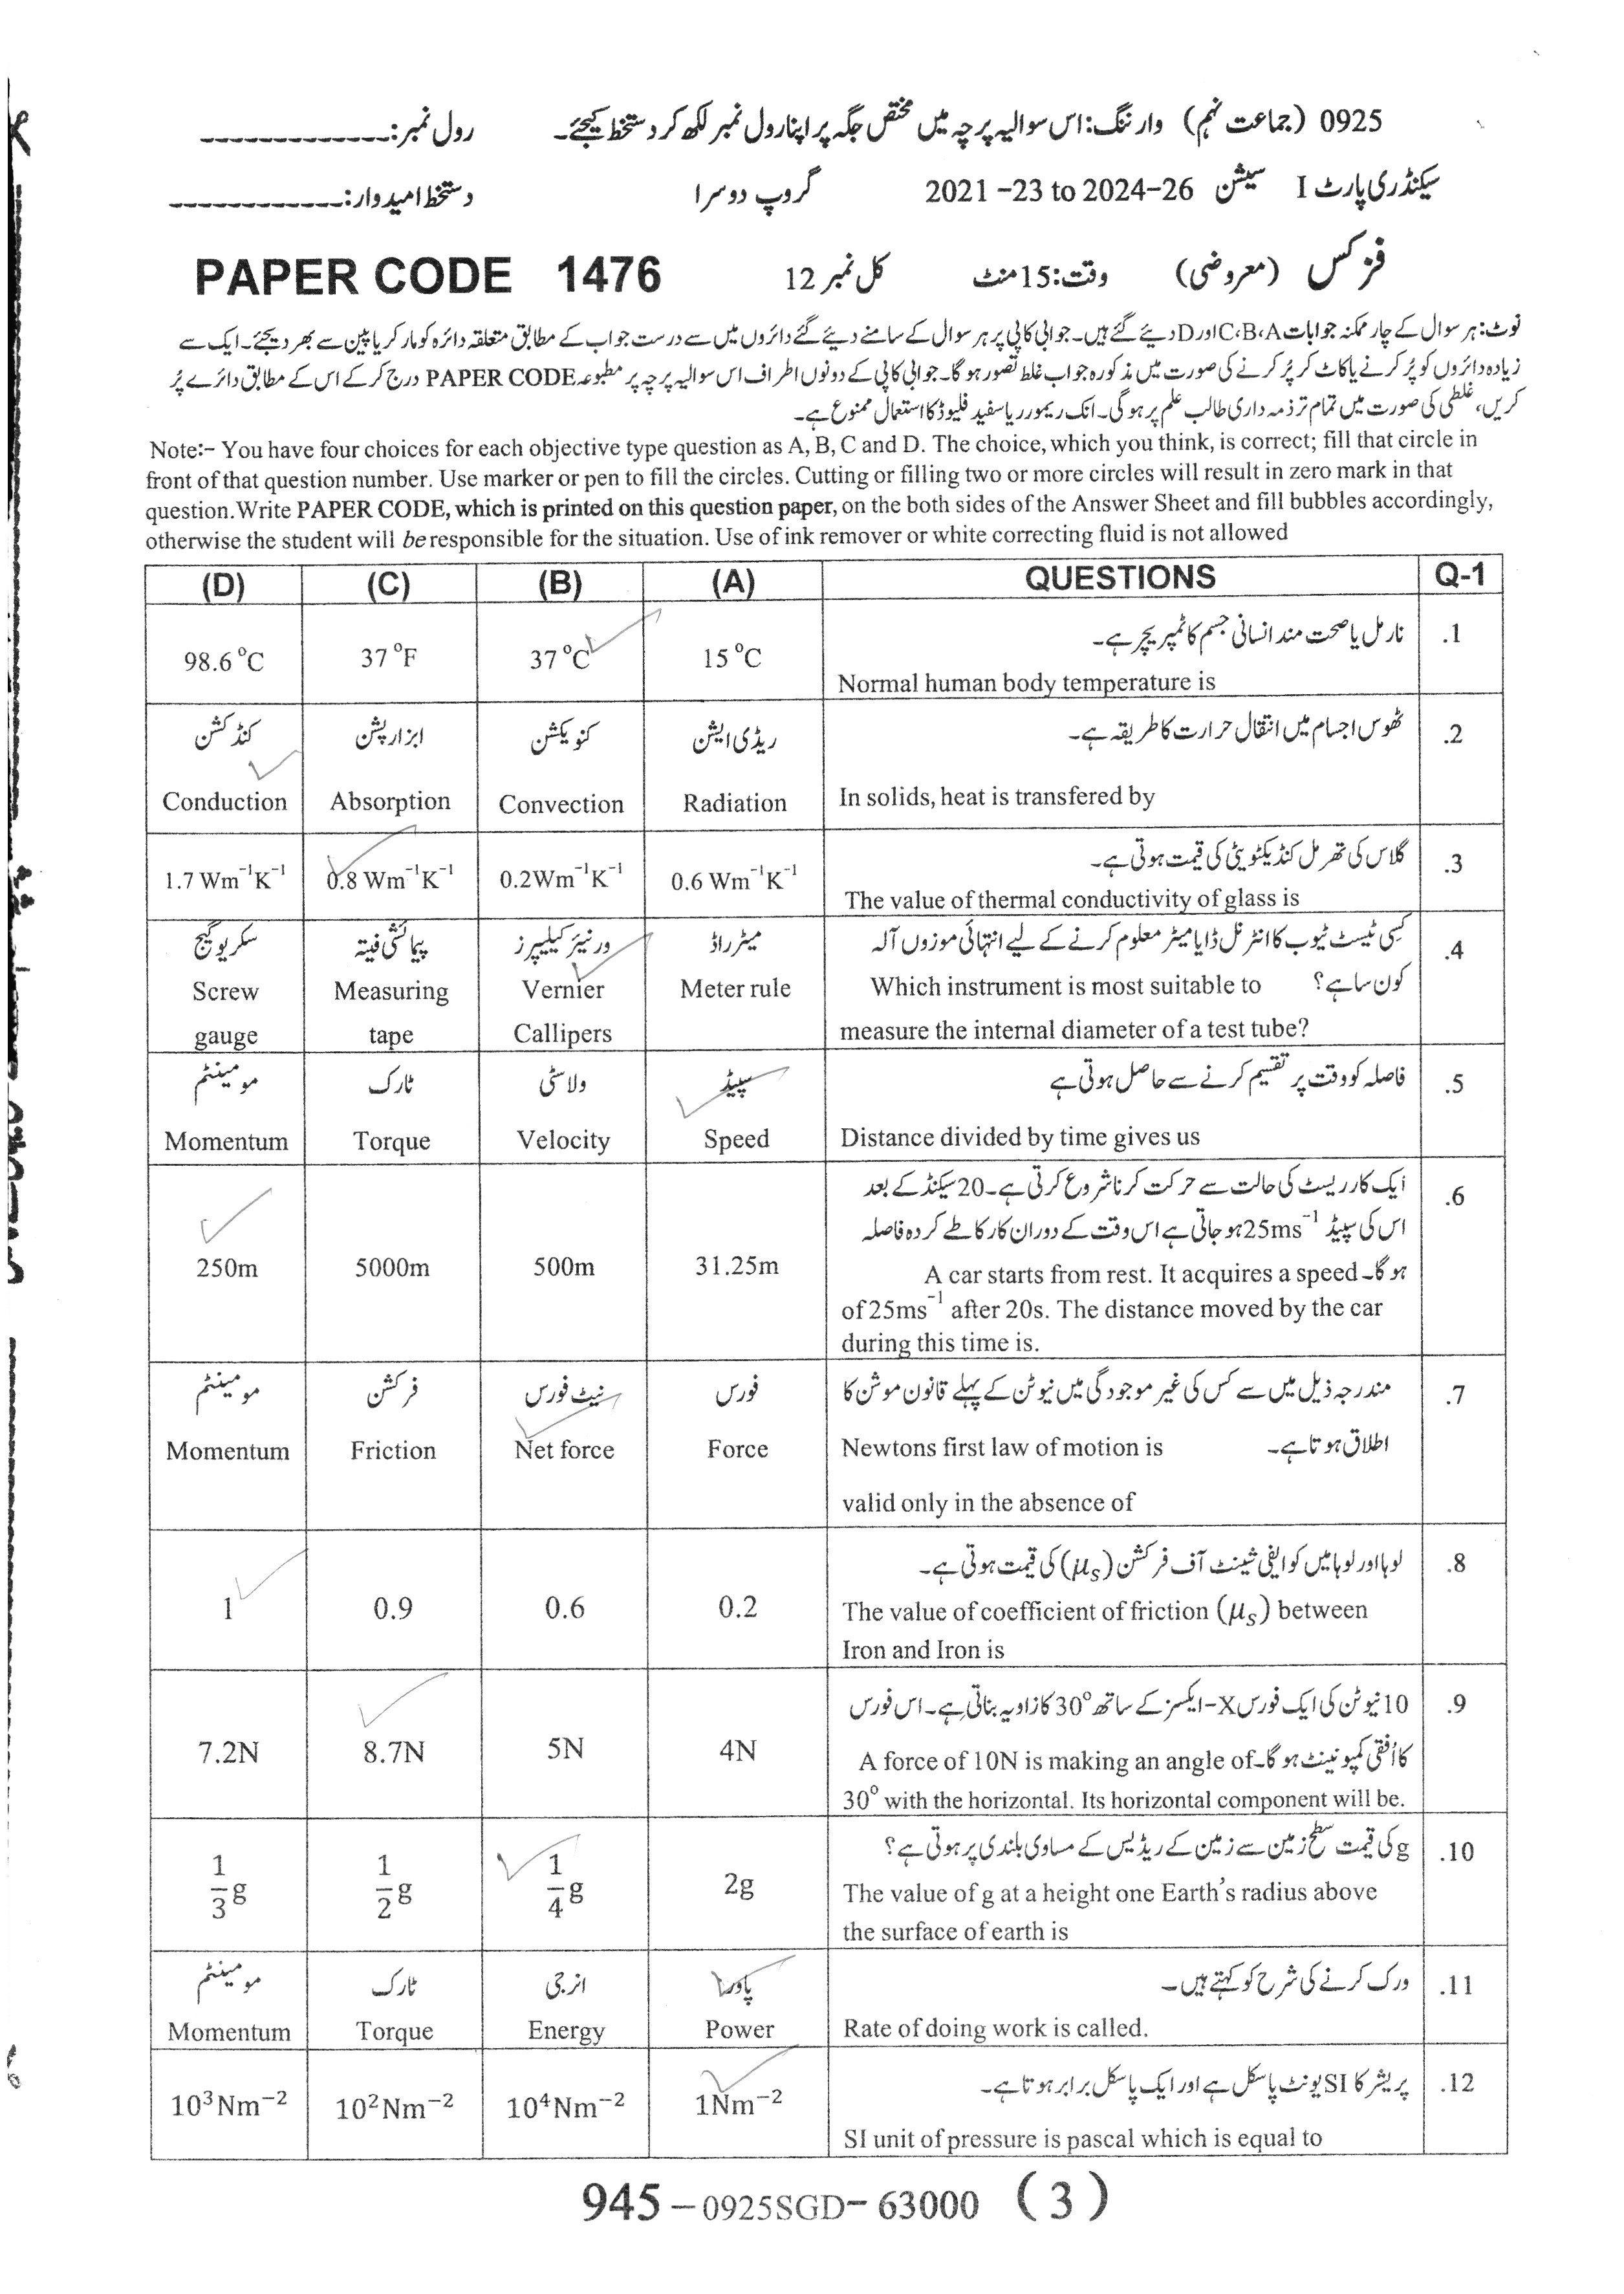 0925 (جماعت نہم) وارننگ: اس سوالیہ پرچہ میں مختص جگہ پر اپنا رول نمبر لکھ کر دستخط کیجئے۔ رول نمبر: _____________
سیکنڈری پارٹ I سیشن 2021 -23 to 2024-26 گروپ دوسرا دستخط امیدوار: _____________
فزکس (معروضی) وقت: 15 منٹ کل نمبر 12 PAPER CODE 1476
نوٹ: ہر سوال کے چار ممکنہ جوابات A، B، C اور D دیئے گئے ہیں۔ جوابی کاپی پر ہر سوال کے سامنے دیئے گئے دائروں میں سے درست جواب کے مطابق متعلقہ دائرہ کو مارکر یا پین سے بھر دیجئے۔ ایک سے
زیادہ دائروں کو پُر کرنے یا کاٹ کر پُر کرنے کی صورت میں مذکورہ جواب غلط تصور ہو گا۔ جوابی کاپی کے دونوں اطراف اس سوالیہ پرچہ پر مطبوعہ PAPER CODE درج کر کے اس کے مطابق دائرے پُر
کریں، غلطی کی صورت میں تمام تر ذمہ داری طالب علم پر ہو گی۔ انک ریمور یا سفید فلیوڈ کا استعمال ممنوع ہے۔
Note:- You have four choices for each objective type question as A, B, C and D. The choice, which you think, is correct; fill that circle in
front of that question number. Use marker or pen to fill the circles. Cutting or filling two or more circles will result in zero mark in that
question.Write PAPER CODE, which is printed on this question paper, on the both sides of the Answer Sheet and fill bubbles accordingly,
otherwise the student will be responsible for the situation. Use of ink remover or white correcting fluid is not allowed
(D) (C) (B) (A) QUESTIONS Q-1
نارمل یا صحت مند انسانی جسم کا ٹمپریچر ہے۔ .1
98.6 °C 37 °F 37 °C 15 °C
Normal human body temperature is
کنڈکشن ابزارپشن کنویکشن ریڈی ایشن ٹھوس اجسام میں انتقال حرارت کا طریقہ ہے۔ .2
Conduction Absorption Convection Radiation In solids, heat is transfered by
گلاس کی تھرمل کنڈیکٹویٹی کی قیمت ہوتی ہے۔ .3
1.7 Wm⁻¹K⁻¹ 0.8 Wm⁻¹K⁻¹ 0.2Wm⁻¹K⁻¹ 0.6 Wm⁻¹K⁻¹
The value of thermal conductivity of glass is
سکریو گیج پیمائشی فیتہ ورنیئر کیلیپرز میٹر راڈ کسی ٹیسٹ ٹیوب کا انٹرنل ڈایا میٹر معلوم کرنے کے لیے انتہائی موزوں آلہ .4
Screw Measuring Vernier Meter rule Which instrument is most suitable to کون سا ہے؟
gauge tape Callipers measure the internal diameter of a test tube?
مومینٹم ٹارک ولاسٹی سپیڈ فاصلہ کو وقت پر تقسیم کرنے سے حاصل ہوتی ہے .5
Momentum Torque Velocity Speed Distance divided by time gives us
ایک کار ریسٹ کی حالت سے حرکت کرنا شروع کرتی ہے۔ 20 سیکنڈ کے بعد .6
اس کی سپیڈ 25ms⁻¹ ہو جاتی ہے اس وقت کے دوران کار کا طے کردہ فاصلہ
250m 5000m 500m 31.25m A car starts from rest. It acquires a speed ہو گا۔
of 25ms⁻¹ after 20s. The distance moved by the car
during this time is.
مومینٹم فرکشن نیٹ فورس فورس مندرجہ ذیل میں سے کس کی غیر موجودگی میں نیوٹن کے پہلے قانون موشن کا .7
Momentum Friction Net force Force Newtons first law of motion is اطلاق ہوتا ہے۔
valid only in the absence of
لوہا اور لوہا میں کو ایفی شینٹ آف فرکشن (μₛ) کی قیمت ہوتی ہے۔ .8
1 0.9 0.6 0.2 The value of coefficient of friction (μₛ) between
Iron and Iron is
10 نیوٹن کی ایک فورس X-ایکسز کے ساتھ 30° کا زاویہ بناتی ہے۔ اس فورس .9
7.2N 8.7N 5N 4N A force of 10N is making an angle of کا اُفقی کمپونینٹ ہو گا۔
30° with the horizontal. Its horizontal component will be.
g کی قیمت سطح زمین سے زمین کے ریڈیس کے مساوی بلندی پر ہوتی ہے؟ .10
1/3 g 1/2 g 1/4 g 2g The value of g at a height one Earth's radius above
the surface of earth is
مومینٹم ٹارک انرجی پاور ورک کرنے کی شرح کو کہتے ہیں۔ .11
Momentum Torque Energy Power Rate of doing work is called.
پریشر کا SI یونٹ پاسکل ہے اور ایک پاسکل برابر ہوتا ہے۔ .12
10³Nm⁻² 10²Nm⁻² 10⁴Nm⁻² 1Nm⁻²
SI unit of pressure is pascal which is equal to
945 – 0925SGD – 63000 (3)